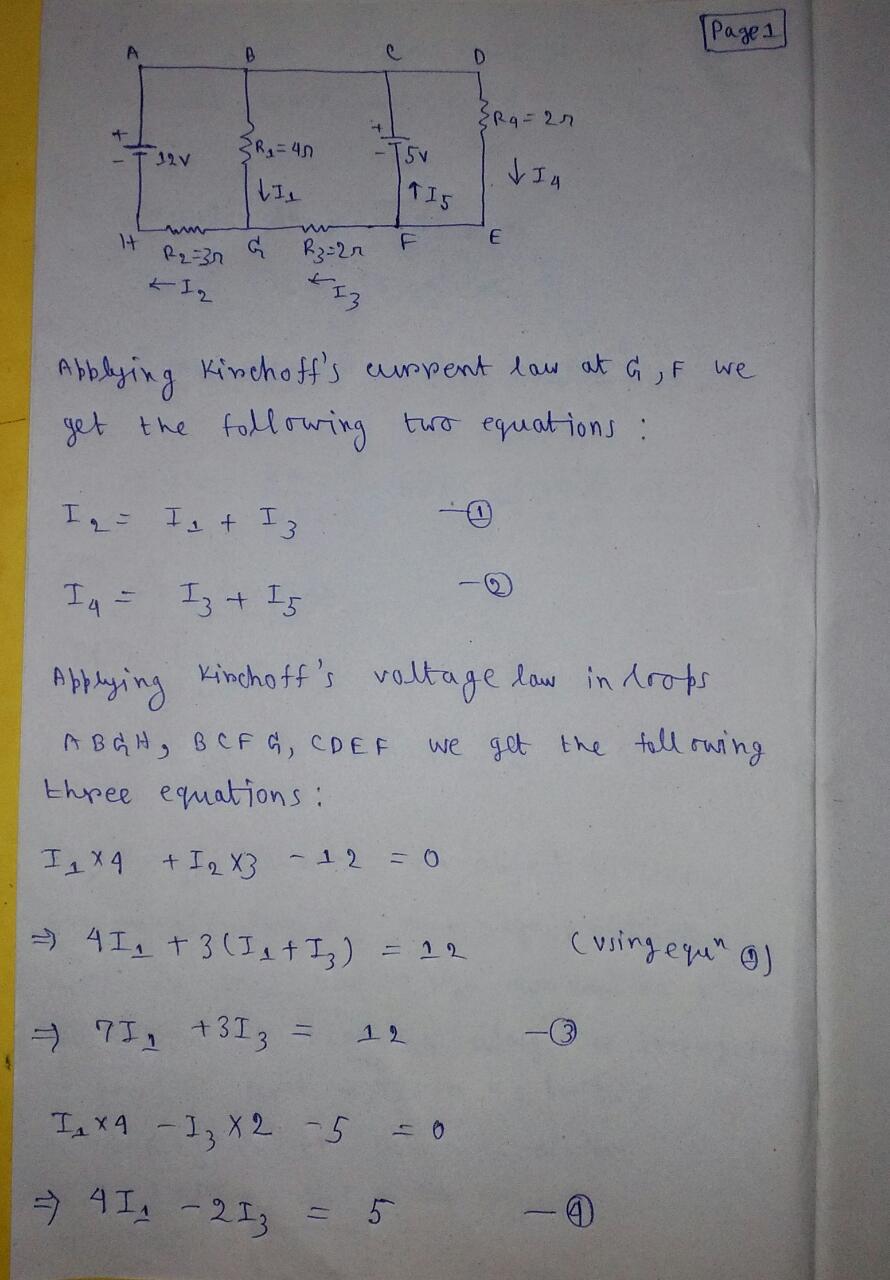 Page 1
A B C D
+ - 12V
R1=4Ω
↓I1
+ - 5V
↑I5
R4=2Ω
↓I4
H R2=3Ω G R3=2Ω F E
←I2 ←I3
Applying Kirchoff's current law at G, F we
get the following two equations :
I2 = I1 + I3 —①
I4 = I3 + I5 —②
Applying Kirchoff's voltage law in loops
ABGH, BCFG, CDEF we get the following
three equations :
I1×4 + I2×3 - 12 = 0
⇒ 4I1 + 3(I1+I3) = 12 (using equn ①)
⇒ 7I1 + 3I3 = 12 —③
I1×4 - I3×2 - 5 = 0
⇒ 4I1 - 2I3 = 5 —④